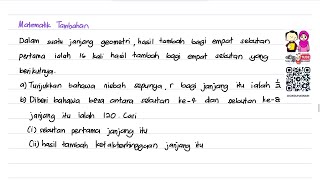 Matematik Tambahan
Dalam suatu janjang geometri, hasil tambah bagi empat sebutan
pertama ialah 16 kali hasil tambah bagi empat sebutan yang
berikutnya.
a) Tunjukkan bahawa nisbah sepunya, r bagi janjang itu ialah 1/2
b) Diberi bahawa beza antara sebutan ke-4 dan sebutan ke-8
janjang itu ialah 120. Cari
(i) sebutan pertama janjang itu
(ii) hasil tambah ketakterhinggaan janjang itu